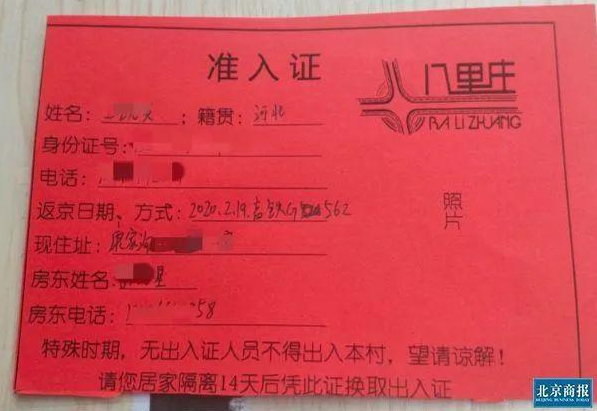 准入证
八里庄
BALIZHUANG
姓名： ；籍贯：河北
身份证号：
电话：
返京日期、方式：2020.2.19.高铁G 562
照片
现住址：康家沟
房东姓名： 星
房东电话： 58
特殊时期，无出入证人员不得出入本村，望请谅解！
请您居家隔离14天后凭此证换取出入证
北京商报